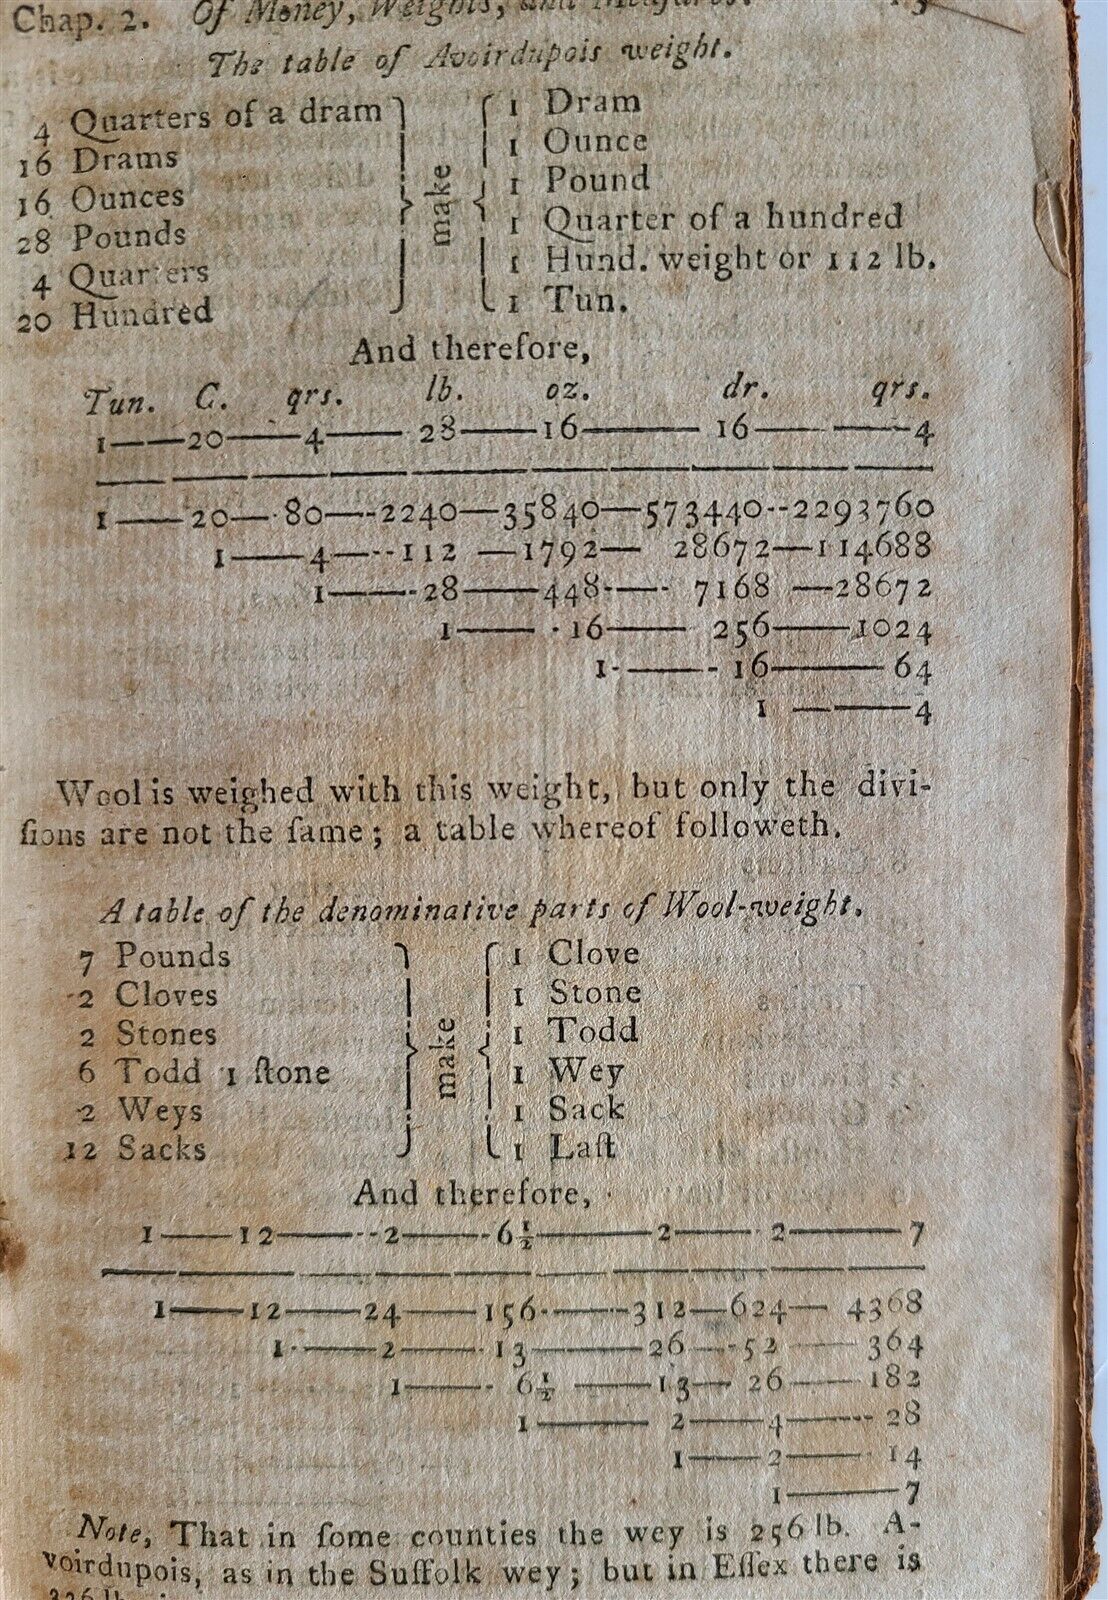 Chap. 2. Of Money, Weights, and Meaſures.
The table of Avoirdupois weight.
4 Quarters of a dram 1 Dram
16 Drams 1 Ounce
16 Ounces 1 Pound
28 Pounds make 1 Quarter of a hundred
4 Quarters 1 Hund. weight or 112 lb.
20 Hundred 1 Tun.
And therefore,
Tun. C. qrs. lb. oz. dr. qrs.
1——20——4——28——16——16——4
1——20—80—2240—35840—573440--2293760
1——4—--112—1792—28672—114688
1——28——448—7168—28672
1——16——256——1024
1——16——64
1——4
Wool is weighed with this weight, but only the divi-
ſions are not the ſame; a table whereof followeth.
A table of the denominative parts of Wool-weight.
7 Pounds 1 Clove
2 Cloves 1 Stone
2 Stones 1 Todd
6 Todd 1 ſtone make 1 Wey
2 Weys 1 Sack
12 Sacks 1 Laſt
And therefore,
1——12——2——6½——2——2——7
1——12——24——156——312—624—4368
1——2——13——26—52——364
1——6½——13—26——182
1——2——4——28
1——2——14
1——7
Note, That in ſome counties the wey is 256 lb. A-
voirdupois, as in the Suffolk wey; but in Eſſex there is